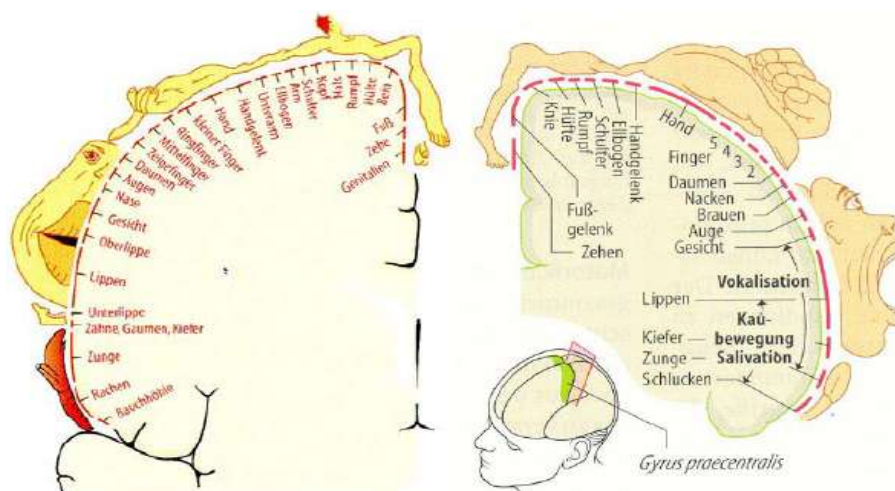 Genitalien
Zehe
Fuß
Bein
Hüfte
Rumpf
Hals
Kopf
Schulter
Arm
Ellbogen
Unterarm
Handgelenk
Hand
Kleiner Finger
Ringfinger
Mittelfinger
Zeigefinger
Daumen
Augen
Nase
Gesicht
Oberlippe
Lippen
Unterlippe
Zähne, Gaumen, Kiefer
Zunge
Rachen
Bauchhöhle
Knie
Hüfte
Rumpf
Schulter
Ellbogen
Handgelenk
Hand
5
4
3
2
Finger
Daumen
Nacken
Brauen
Auge
Gesicht
Fuß-
gelenk
Zehen
Vokalisation
Lippen
Kau-
Kiefer bewegung
Zunge Salivation
Schlucken
Gyrus praecentralis